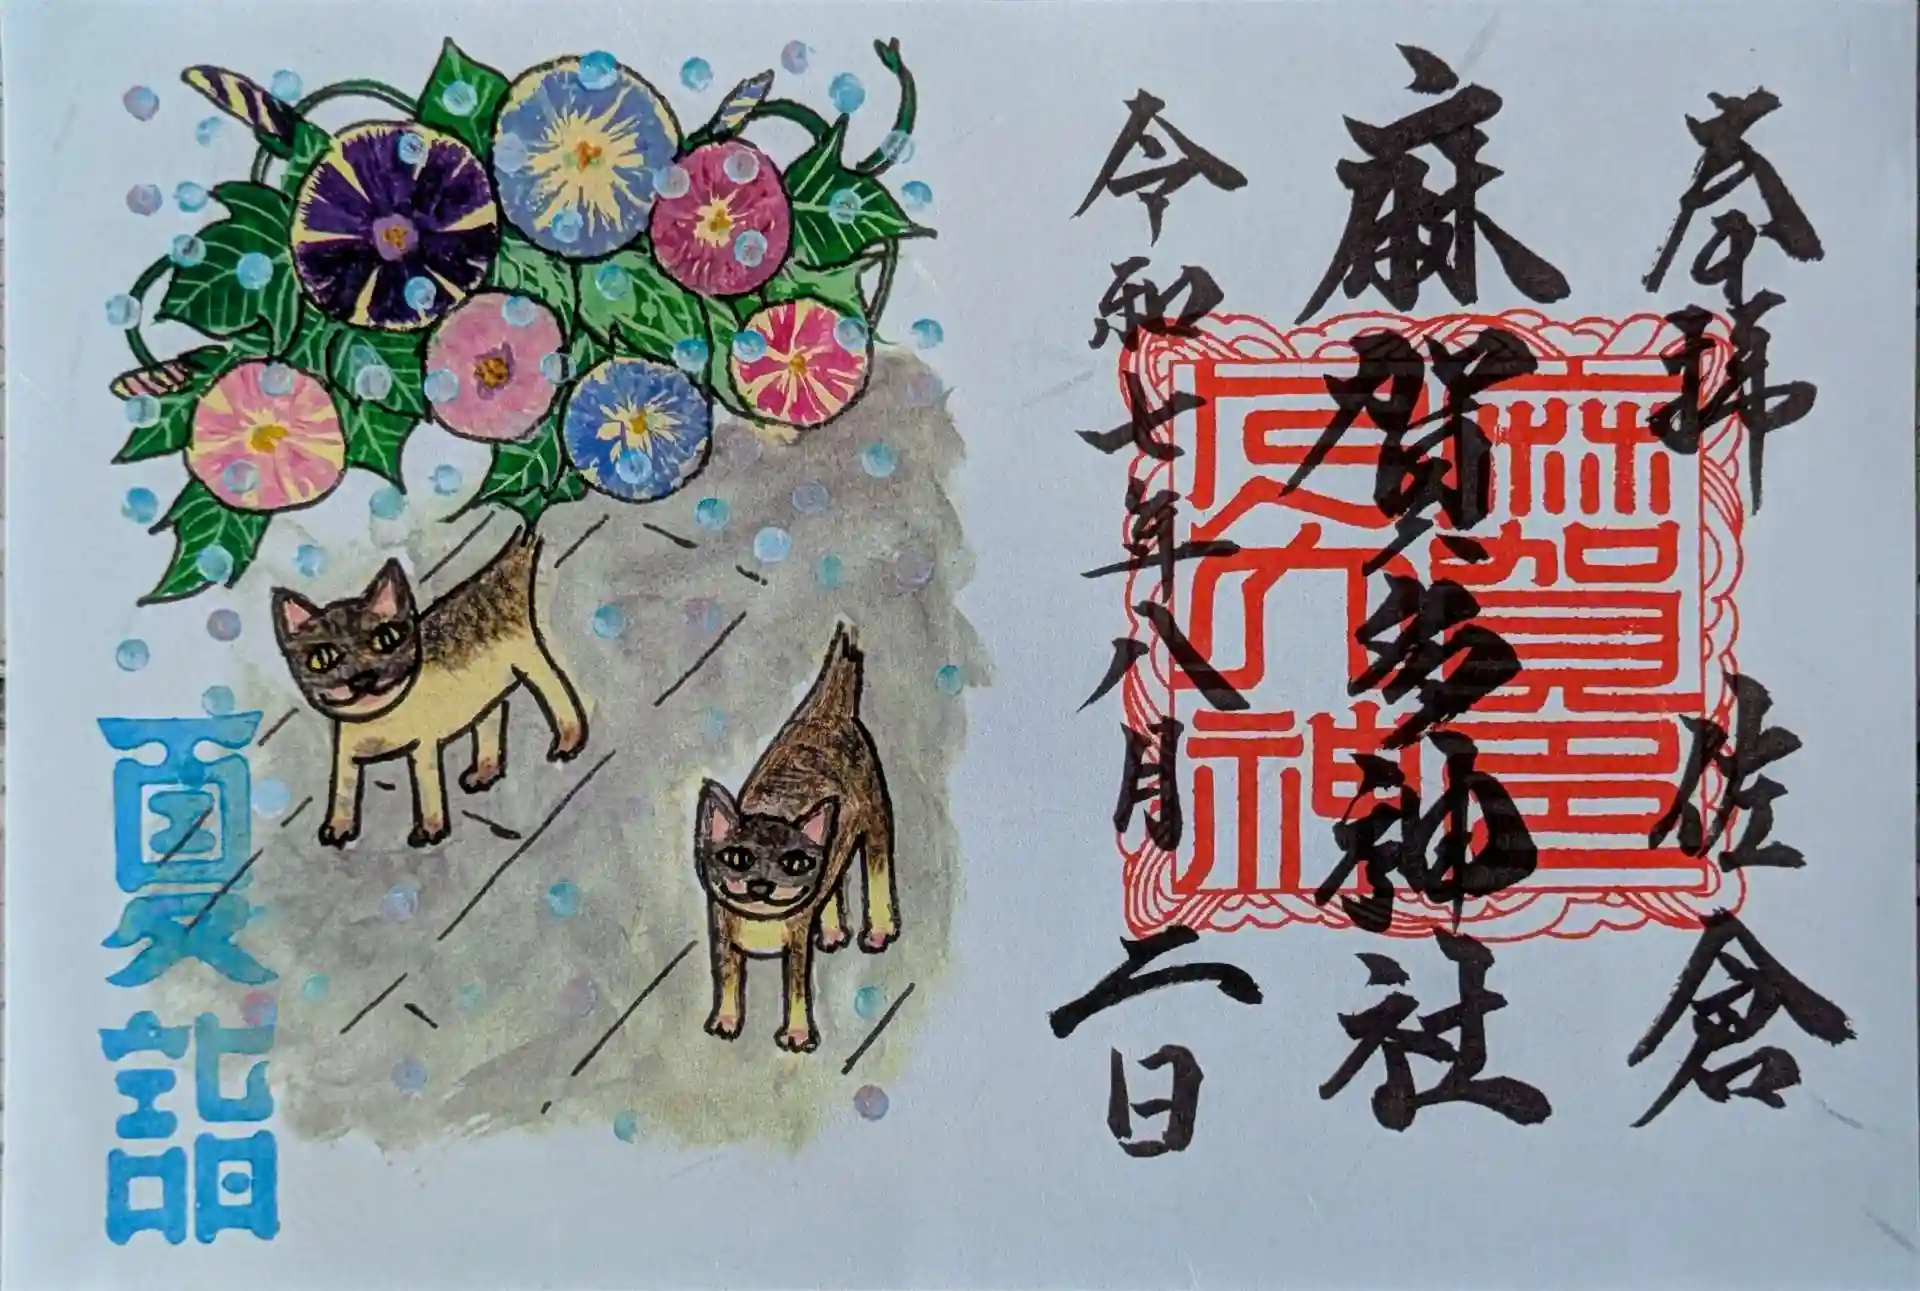 奉拝 佐倉
麻賀多神社
令和七年八月二日
麻賀多
大神
夏詣